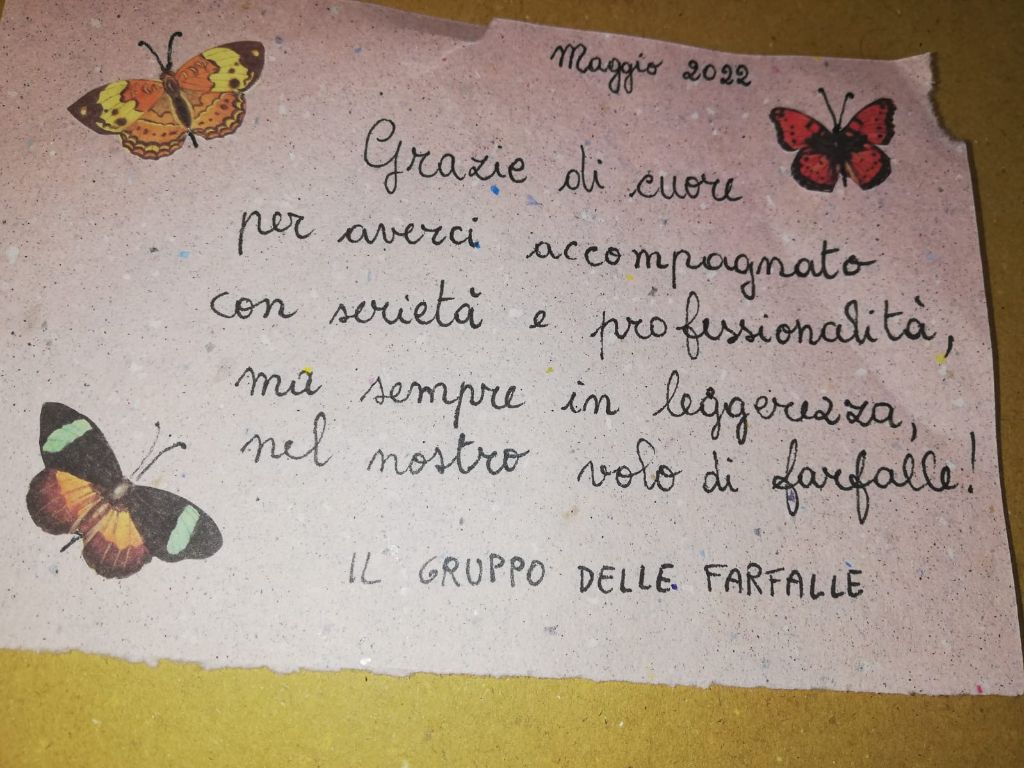 Maggio 2022
Grazie di cuore
per averci accompagnato
con serietà e professionalità,
ma sempre in leggerezza,
nel nostro volo di farfalle!
IL GRUPPO DELLE FARFALLE